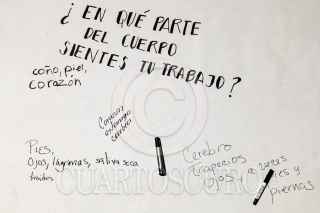 ¿EN QUÉ PARTE
DEL CUERPO
SIENTES TU TRABAJO?
coño, piel,
corazón
estómago
cerebro
Pies,
Ojos, lágrimas, saliva seca
Cerebro
trapecios
Ojos a veces
pies y
piernas
CUARTOSCURO